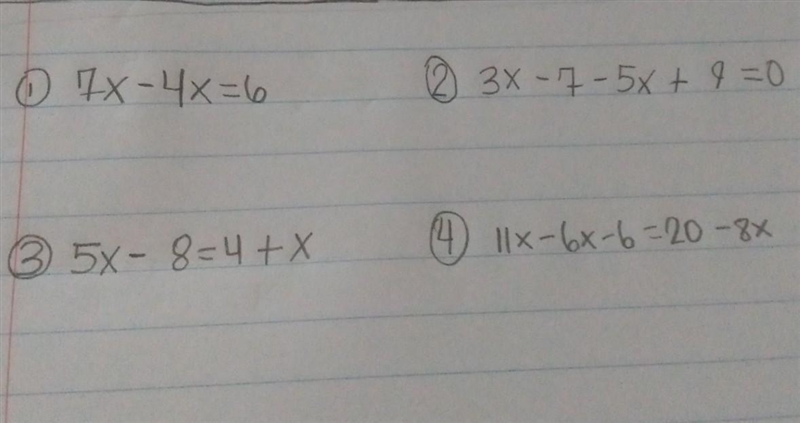 ① 7x - 4x = 6
② 3x - 7 - 5x + 9 = 0
③ 5x - 8 = 4 + x
④ 11x - 6x - 6 = 20 - 8x